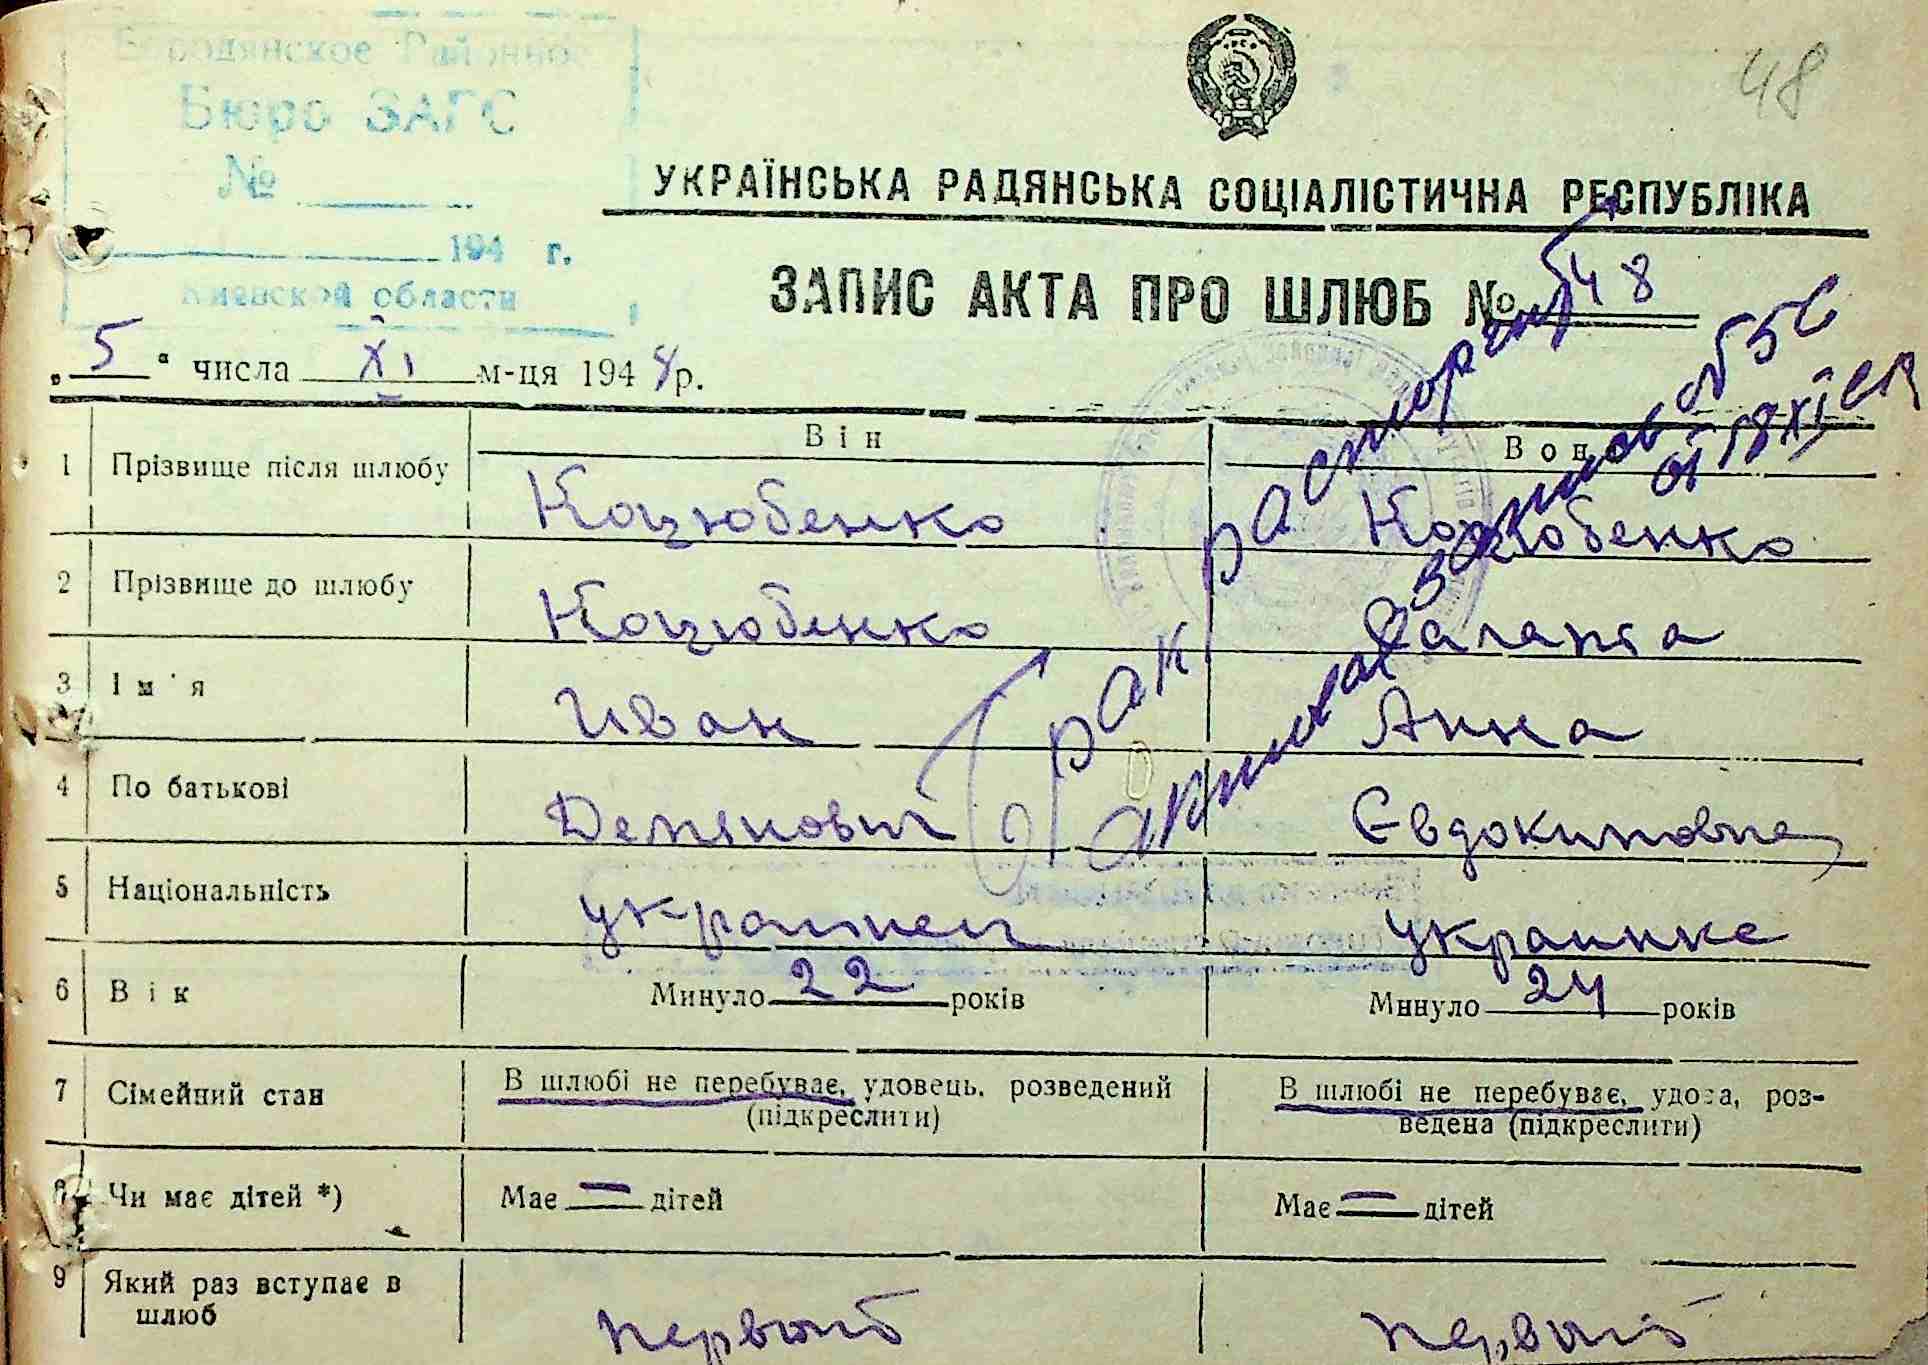 Бородянское Районное
48
Бюро ЗАГС
№
194 г.
Киевской области
УКРАЇНСЬКА РАДЯНСЬКА СОЦІАЛІСТИЧНА РЕСПУБЛІКА
ЗАПИС АКТА ПРО ШЛЮБ № 48
„5“ числа XI м-ця 1948 р.
Він Вона
1 Прізвище після шлюбу Коцюбенко Коцюбенко
2 Прізвище до шлюбу Коцюбенко Саланта
3 Ім'я Иван Анна
4 По батькові Демянович Євдокимовна
5 Національність украинец украинке
6 Вік Минуло 22 років Минуло 24 років
7 Сімейний стан В шлюбі не перебуває, удовець, розведений (підкреслити) В шлюбі не перебуває, удова, розведена (підкреслити)
8 Чи має дітей *) Має — дітей Має — дітей
9 Який раз вступає в шлюб первый первый
Брак расторгнут
актовая запись об 56
от 18 XI